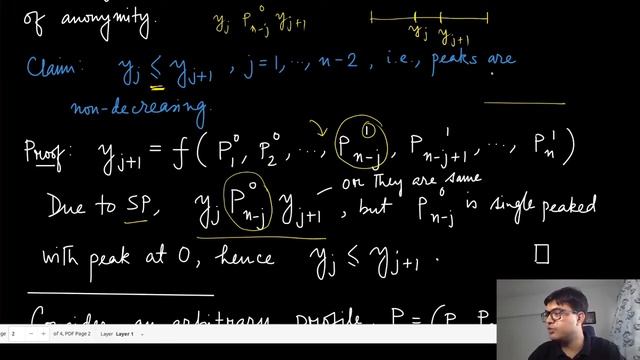 of anonymity.
y_j P^0_{n-j} y_{j+1}
y_j y_{j+1}
Claim: y_j ≤ y_{j+1}, j=1, ..., n-2, i.e., peaks are
non-decreasing.
Proof: y_{j+1} = f(P^0_1, P^0_2, ..., P^1_{n-j}, P^1_{n-j+1}, ..., P^1_n)
or they are same
Due to SP, y_j P^0_{n-j} y_{j+1}, but P^0_{n-j} is single peaked
with peak at 0, hence y_j ≤ y_{j+1}. □
Consider an arbitrary profile, P = (P
age 2 of 4, PDF Page 2 Layer Layer 1